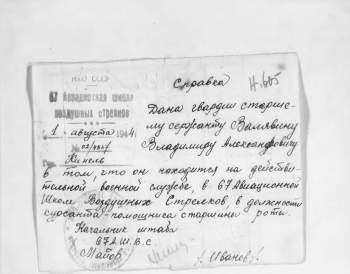 Справка
НКО СССР
67 Авиационная школа
воздушных стрелков
1 августа 1944
№
Кинель
Дана гвардии старше-
му сержанту
Владимиру Александровичу
в том, что он находится на действи-
тельной военной службе, в 67 Авиационной
Школе Воздушных Стрелков, в должности
курсанта-помощника старшины роты.
Начальник штаба
67 А.Ш.В.С.
Майор
Иванов